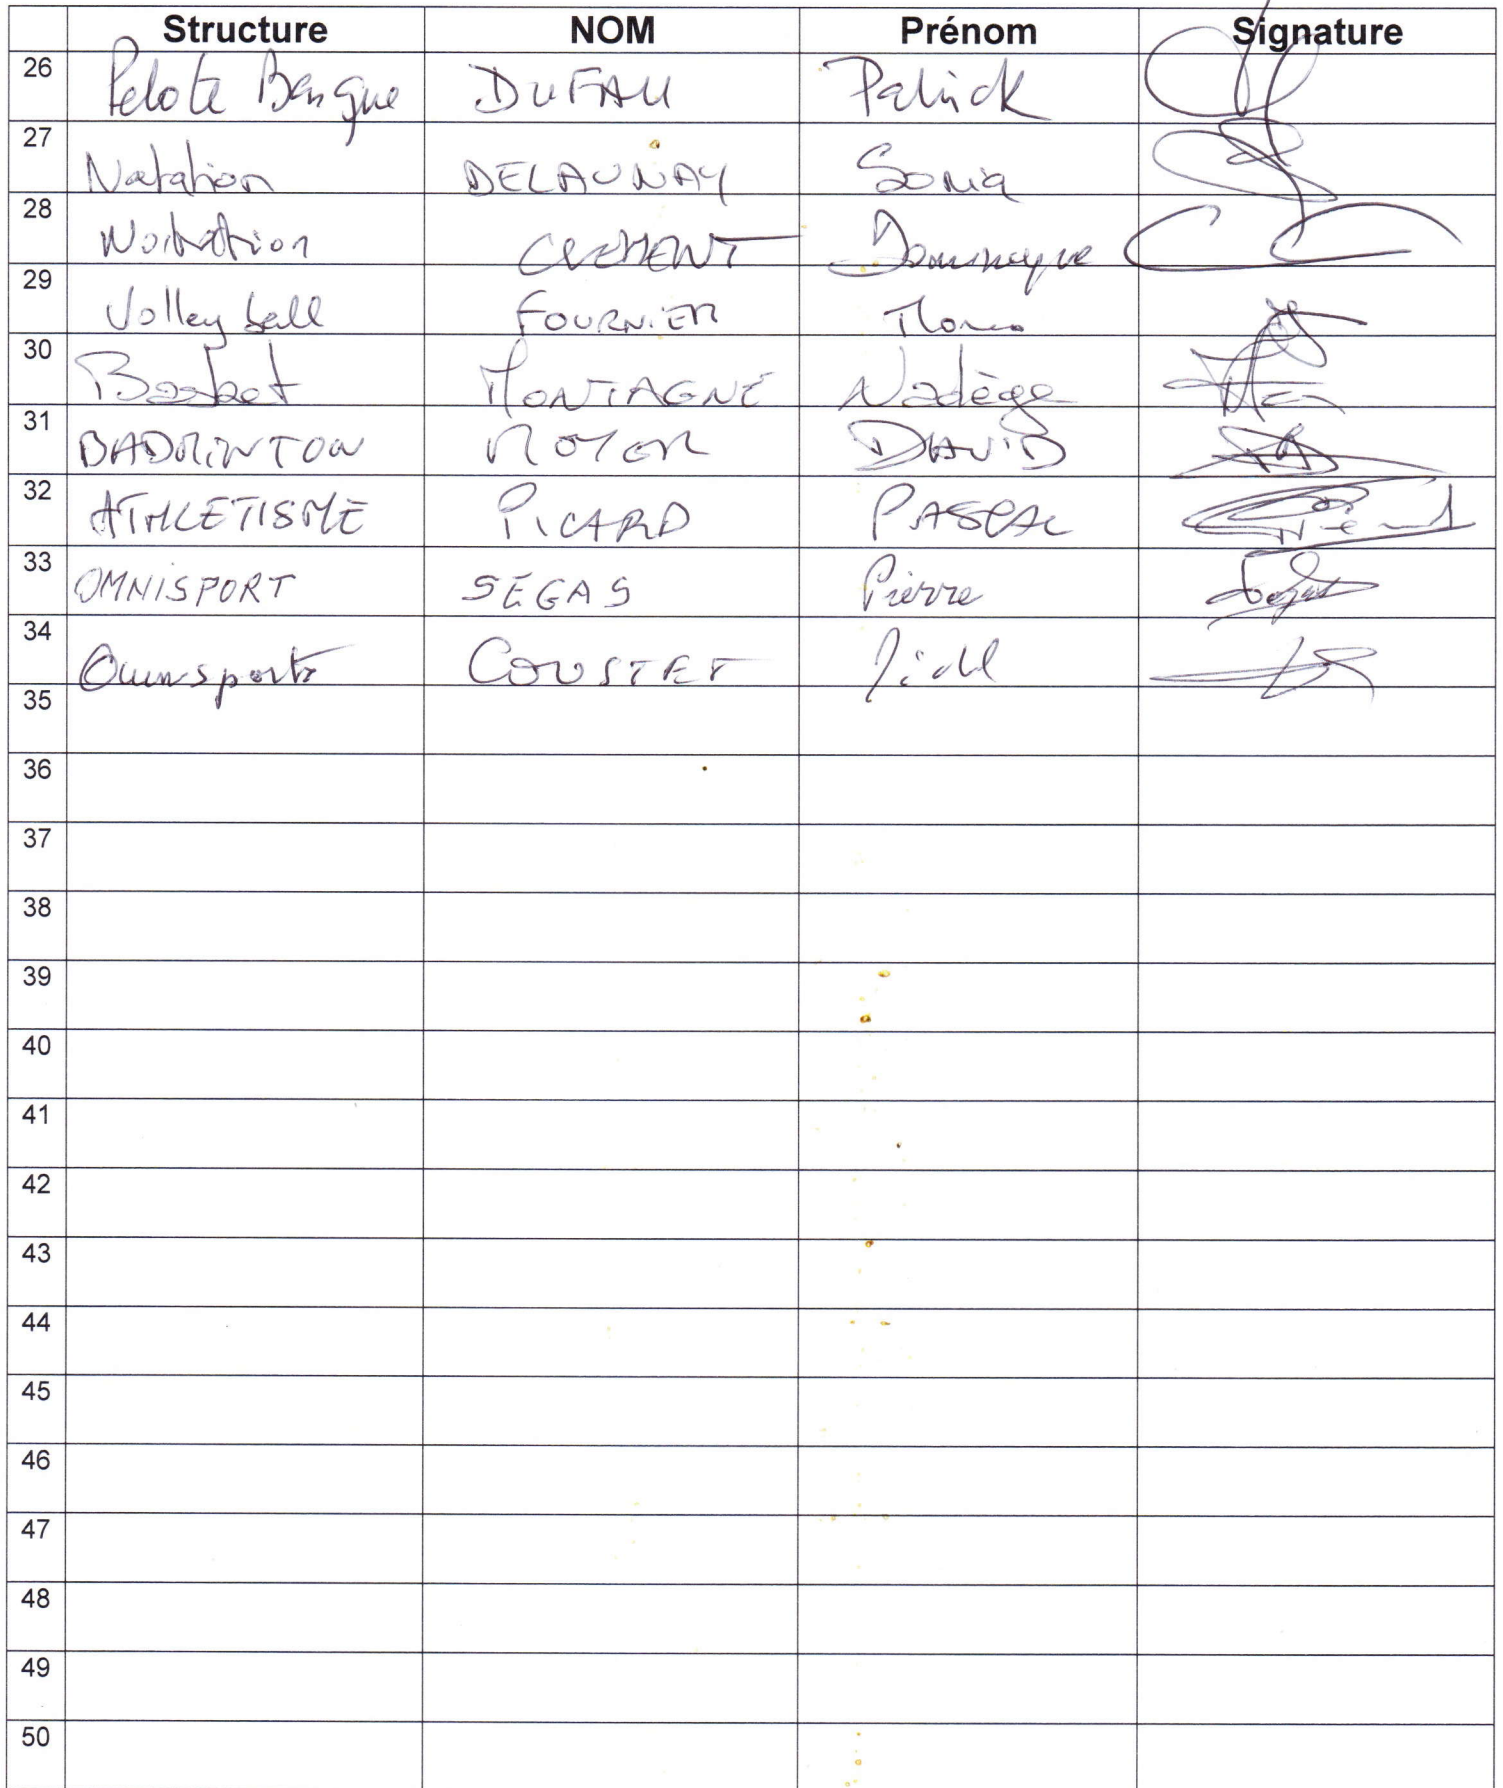 Structure NOM Prénom Signature
26 Pelote Basque DUFAU Patrick
27 Natation DELAUNAY Sonia
28 Natation CLEMENT Dominique
29 Volley ball FOURNIER Thomas
30 Basket MONTAGNE Nadège
31 BADMINTON ROYER DAVID
32 ATHLETISME PICARD PASCAL
33 OMNISPORT SEGAS Pierre
34 Omnisports COUSTET
35
36
37
38
39
40
41
42
43
44
45
46
47
48
49
50